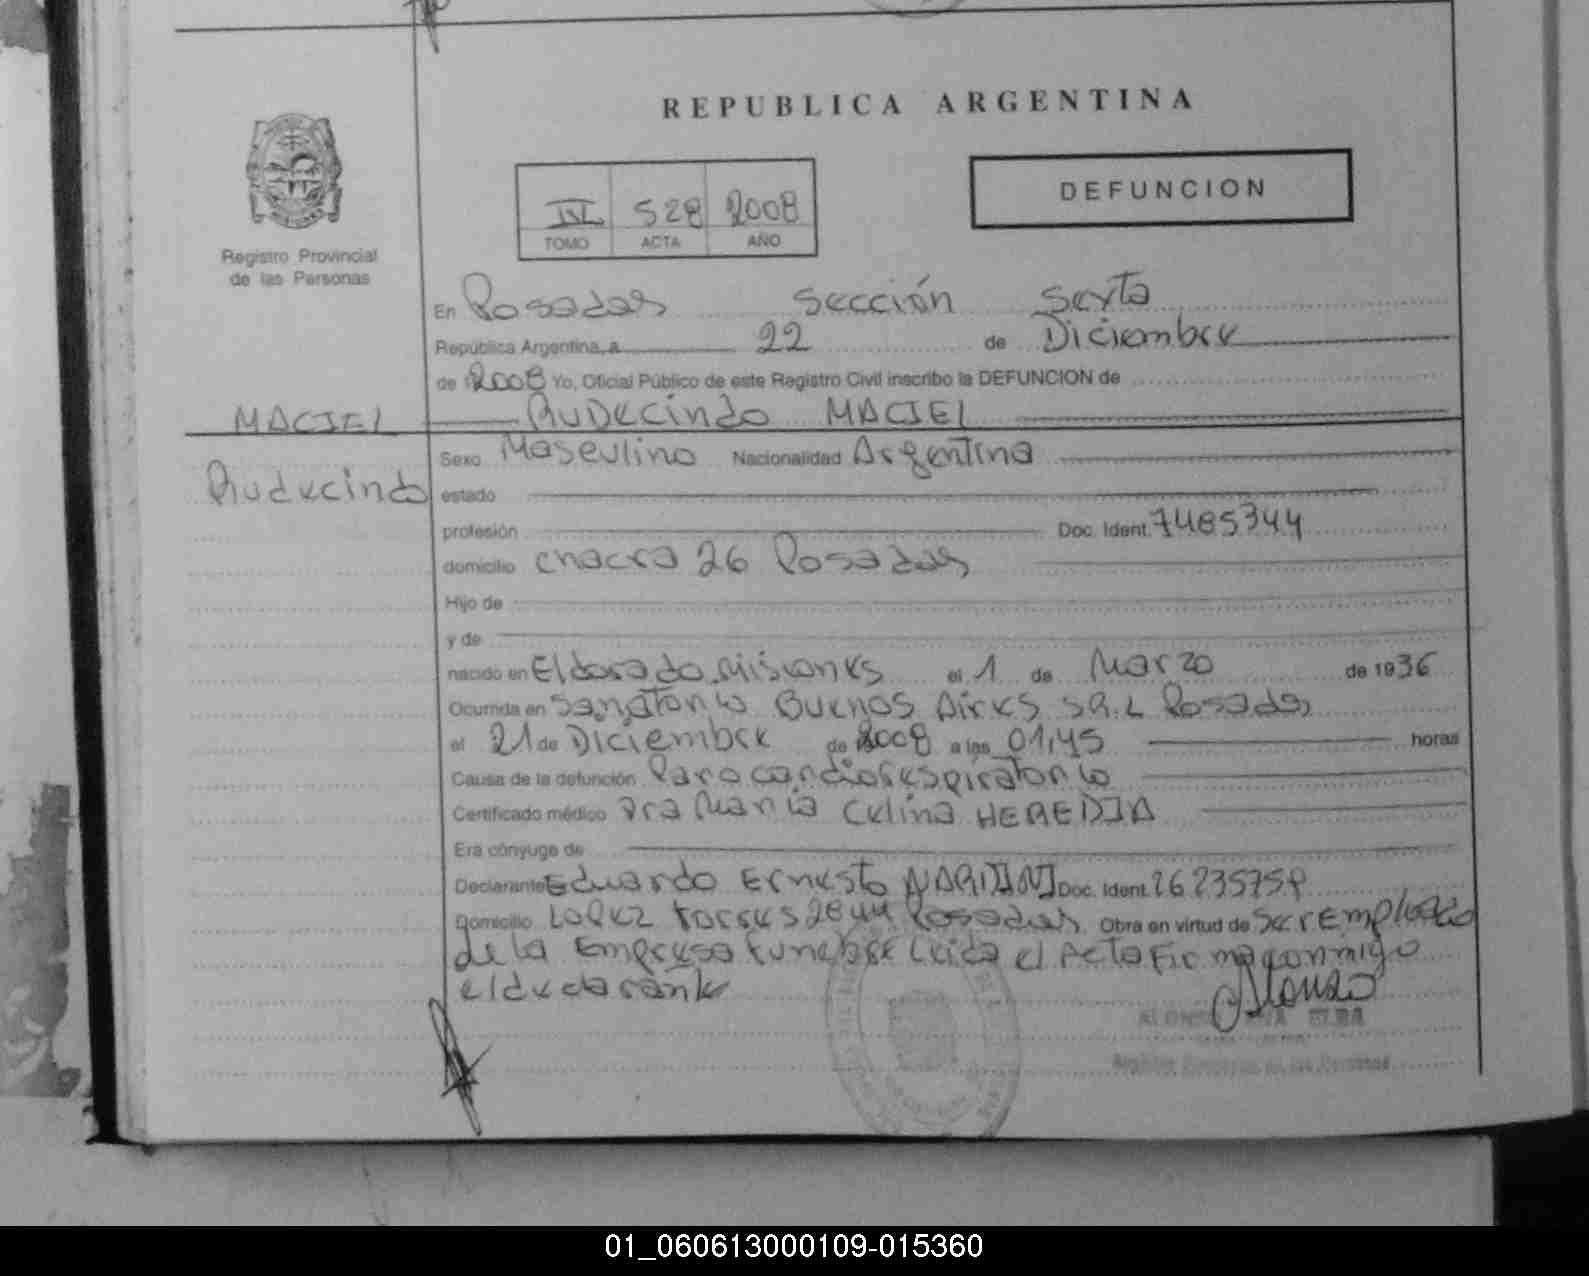 REPUBLICA ARGENTINA
DEFUNCION
IV 528 2008
TOMO ACTA AÑO
Registro Provincial
de las Personas
En Posadas Sección Sexta
República Argentina, a 22 de Diciembre
de 2008 Yo, Oficial Público de este Registro Civil inscribo la DEFUNCION de
MACIEL
Rudecindo MACIEL
Sexo Masculino Nacionalidad Argentina
Rudecindo
estado
profesión Doc. Ident. 7485344
domicilio chacra 26 Posadas
Hijo de
y de
nacido en Eldorado Misiones el 1 de Marzo de 1936
Ocurrida en Sanatorio Buenos Aires S.R.L Posadas
el 21 de Diciembre de 2008 a las 01,45 horas
Causa de la defunción Paro cardiorespiratorio
Certificado médico Dra Maria Celina HEREDIA
Era cónyuge de
Declarante Eduardo Ernesto NARDINI Doc. Ident. 26235759
Domicilio Lopez torres 2844 Posadas Obra en virtud de Ser Empleado
de la Empresa funebre Leida el Acta Firma conmigo
el declarante
Alonso
ELBA
de las Personas
01_060613000109-015360